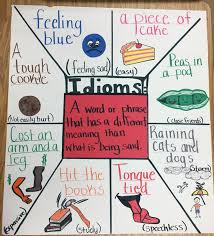 feeling
blue
(feeling sad)
a piece of
cake
(easy)
A
tough
cookie
(Not easily hurt)
Peas in
a pod
(close friends)
Idioms:
A word or phrase
that has a different
meaning than
what is being said.
Cost an
arm and a
leg
(expensive)
Raining
cats and
dogs
(storm)
Hit the
books
(study)
Tongue
tied
(speechless)